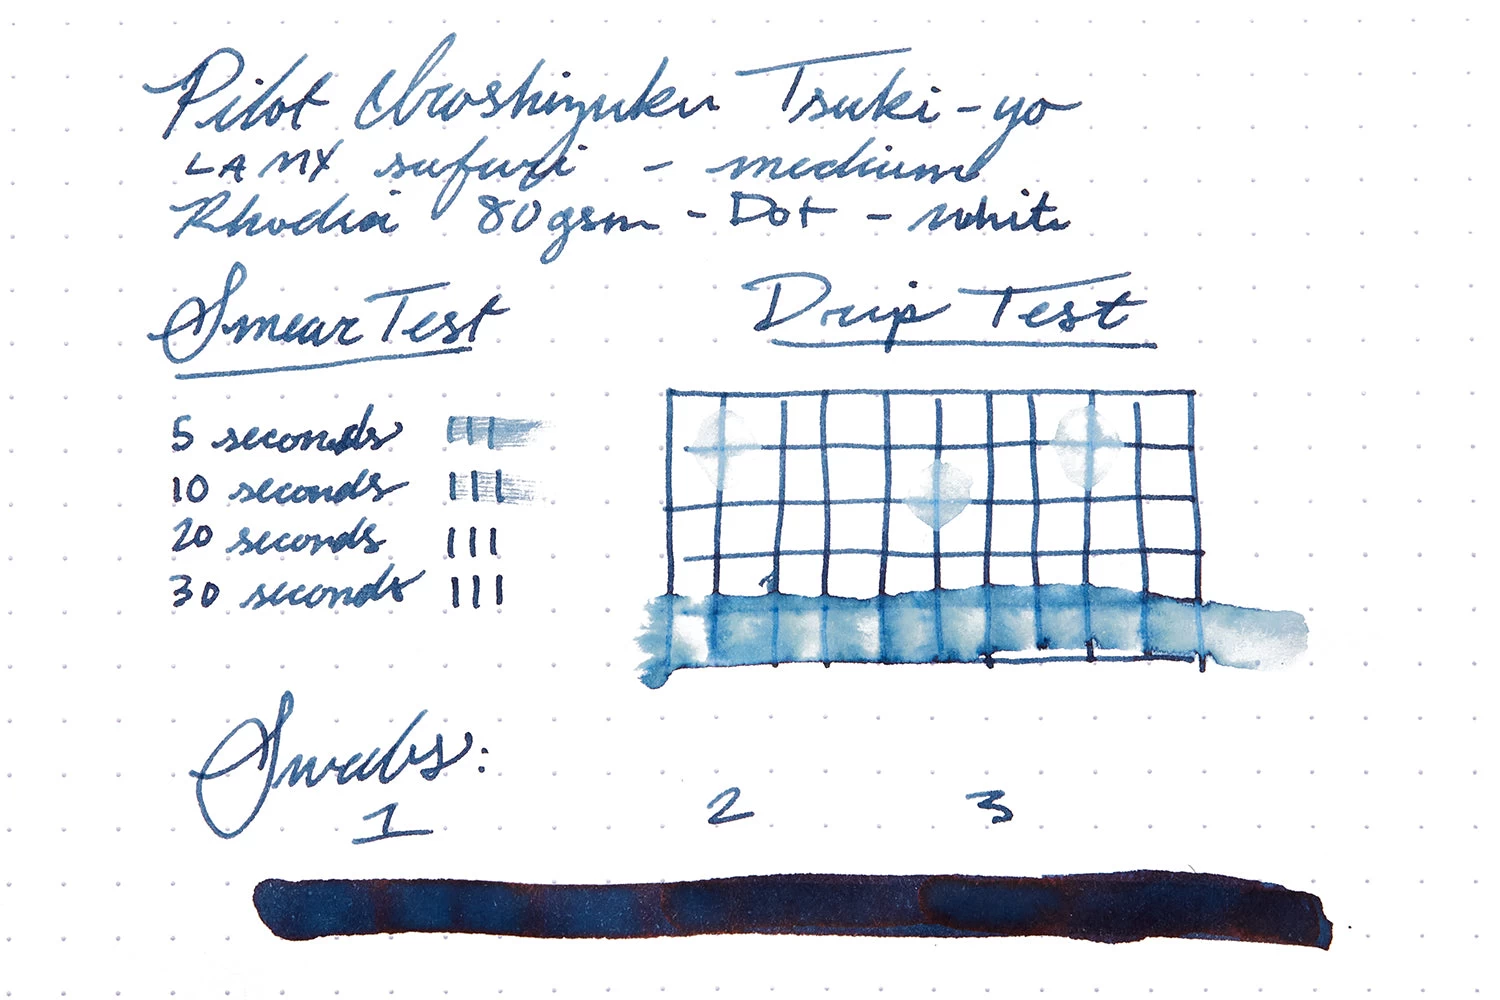 Pilot Iroshizuku Tsuki-yo
LAMY safari - medium
Rhodia 80gsm - Dot - white
Smear Test
Drip Test
5 seconds
10 seconds
20 seconds
30 seconds
Swabs:
1 2 3